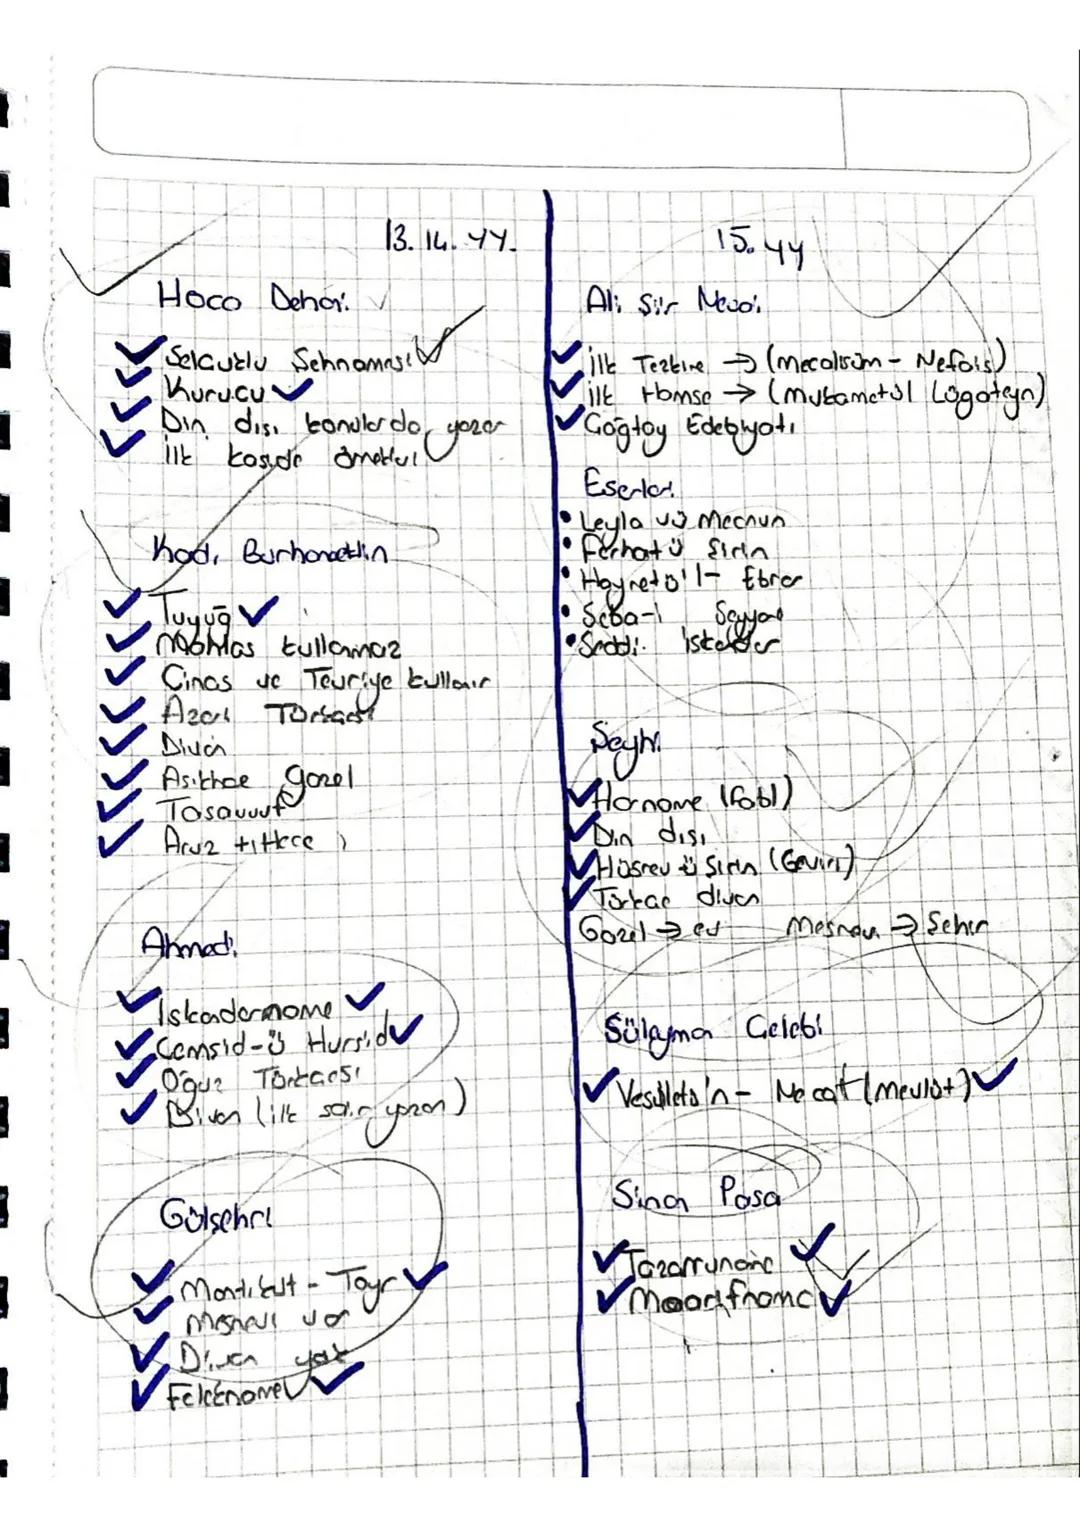 13. 14. YY.
Hoca Dehani
Selcuklu Sehnamesi
Kurucu
Din dışı konularda yazar
ilk kaside örnekleri
Kadı Burhanettin
Tuyuğ
Mahlas kullanmaz
Cinas ve Tevriye kullanır
Azeri Türkçesi
Divan
Asıkhae gazel
Tasavvuf
Aruz
Ahmedi
İskendername
Cemsid-ü Hursid
Oğuz Türkçesi
Divan (ilk yazan)
Gülsehri
Mantikut - Tayr
mesnevi var
Divan yok
Felekname
15. yy
Ali Şir Nevai
ilk Tezkire → (mecalisüm - Nefais)
ilk Hamse → (muhametül Lügateyn)
Çağtay Edebiyatı
Eserleri
• Leyla vü mecnun
• Ferhat ü Şirin
• Hayretü'l - Ebrar
• Seba-i Seyyar
• Seddi İskender
Şeyhi
Harname (fabl)
Din dışı
Hüsrev ü Sirin (Çeviri)
Türkçe divan
Gazel → ev Mesnevi → Sehir
Süleyman Çelebi
Vesiletü'n - Necat (mevlüt)
Sinan Pasa
Tazarruname
Maarifname